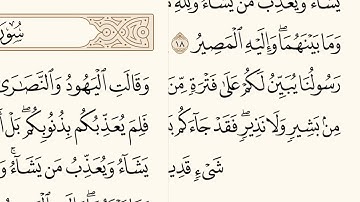 يَشَآءُ وَيُعَذِّبُ مَن يَشَآءُ وَلِلَّهِ
وَمَا بَيْنَهُمَا ۖ وَإِلَيْهِ ٱلْمَصِيرُ ١٨
رَسُولُنَا يُبَيِّنُ لَكُمْ عَلَىٰ فَتْرَةٍ مِّنَ
مِنۢ بَشِيرٍ وَلَا نَذِيرٍ ۖ فَقَدْ جَآءَكُم
شَىْءٍ قَدِيرٌ
وَقَالَتِ ٱلْيَهُودُ وَٱلنَّصَـٰرَىٰ
فَلِمَ يُعَذِّبُكُم بِذُنُوبِكُم ۖ بَلْ
يَشَآءُ وَيُعَذِّبُ مَن يَشَآءُ ۚ